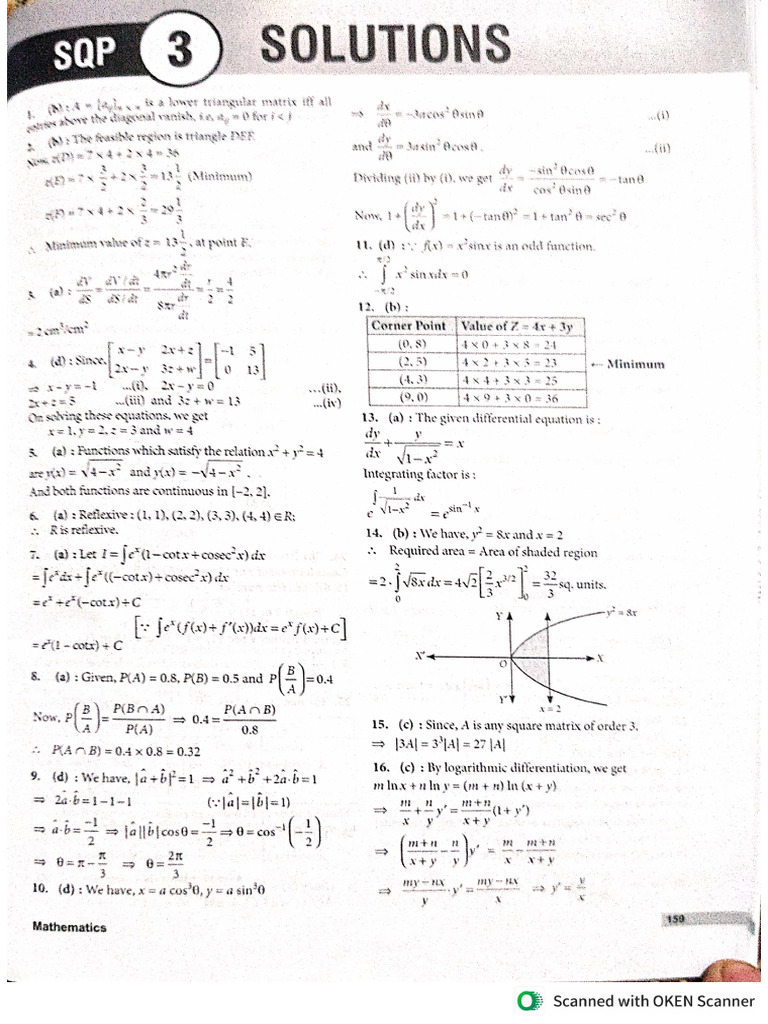 SQP 3 SOLUTIONS
1. (b) : A = [a_ij]_n×n is a lower triangular matrix iff all
entries above the diagonal vanish, i.e, a_ij = 0 for i < j
2. (b) : The feasible region is triangle DEF.
Now, z(D) = 7 × 4 + 2 × 4 = 36
z(E) = 7 × 3/2 + 2 × 3/2 = 13 1/2 (Minimum)
z(F) = 7 × 4 + 2 × 2/3 = 29 1/3
∴ Minimum value of z = 13 1/2, at point E.
3. (a) : dV/dS = (dV/dt)/(dS/dt) = (4πr² dr/dt)/(8πr dr/dt) = r/2 = 4/2
= 2 cm³/cm²
4. (d) : Since, [x – y 2x + z; 2x – y 3z + w] = [–1 5; 0 13]
⇒ x – y = –1 ...(i), 2x – y = 0 ...(ii),
2x + z = 5 ...(iii) and 3z + w = 13 ...(iv)
On solving these equations, we get
x = 1, y = 2, z = 3 and w = 4
5. (a) : Functions which satisfy the relation x² + y² = 4
are y(x) = √(4 – x²) and y(x) = –√(4 – x²) .
And both functions are continuous in [–2, 2].
6. (a) : Reflexive : (1, 1), (2, 2), (3, 3), (4, 4) ∈ R;
∴ R is reflexive.
7. (a) : Let I = ∫eˣ(1 – cot x + cosec²x) dx
= ∫eˣdx + ∫eˣ((–cot x) + cosec²x) dx
= eˣ + eˣ(–cot x) + C
[∵ ∫eˣ(f(x) + f′(x))dx = eˣ f(x) + C]
= eˣ(1 – cotx) + C
8. (a) : Given, P(A) = 0.8, P(B) = 0.5 and P(B/A) = 0.4
Now, P(B/A) = P(B ∩ A)/P(A) ⇒ 0.4 = P(A ∩ B)/0.8
∴ P(A ∩ B) = 0.4 × 0.8 = 0.32
9. (d) : We have, |â + b̂|² = 1 ⇒ â² + b̂² + 2â·b̂ = 1
⇒ 2â·b̂ = 1 – 1 – 1 (∵ |â| = |b̂| = 1)
⇒ â·b̂ = –1/2 ⇒ |â||b̂| cosθ = –1/2 ⇒ θ = cos⁻¹(–1/2)
⇒ θ = π – π/3 ⇒ θ = 2π/3
10. (d) : We have, x = a cos³θ, y = a sin³θ
⇒ dx/dθ = –3a cos²θ sinθ ...(i)
and dy/dθ = 3a sin²θ cosθ . ...(ii)
Dividing (ii) by (i), we get dy/dx = –sin²θ cosθ/cos²θ sinθ = – tan θ
Now, 1 + (dy/dx)² = 1 + (–tan θ)² = 1 + tan²θ = sec²θ
11. (d) : ∵ f(x) = x²sinx is an odd function.
∴ ∫_{–π/2}^{π/2} x² sin x dx = 0
12. (b) :
Corner Point Value of Z = 4x + 3y
(0, 8) 4 × 0 + 3 × 8 = 24
(2, 5) 4 × 2 + 3 × 5 = 23 ← Minimum
(4, 3) 4 × 4 + 3 × 3 = 25
(9, 0) 4 × 9 + 3 × 0 = 36
13. (a) : The given differential equation is :
dy/dx + y/√(1 – x²) = x
Integrating factor is :
e^{∫ 1/√(1–x²) dx} = e^{sin⁻¹ x}
14. (b) : We have, y² = 8x and x = 2
∴ Required area = Area of shaded region
= 2 · ∫₀² √8x dx = 4√2 [2/3 x^{3/2}]₀² = 32/3 sq. units.
Y y² = 8x
X′ O X
Y′ x = 2
15. (c) : Since, A is any square matrix of order 3.
⇒ |3A| = 3³|A| = 27 |A|
16. (c) : By logarithmic differentiation, we get
m ln x + n ln y = (m + n) ln (x + y)
⇒ m/x + n/y y′ = (m + n)/(x + y) (1 + y′)
⇒ ((m + n)/(x + y) – n/y) y′ = m/x – (m + n)/(x + y)
⇒ (my – nx)/y · y′ = (my – nx)/x ⇒ y′ = y/x
Mathematics
159
Scanned with OKEN Scanner